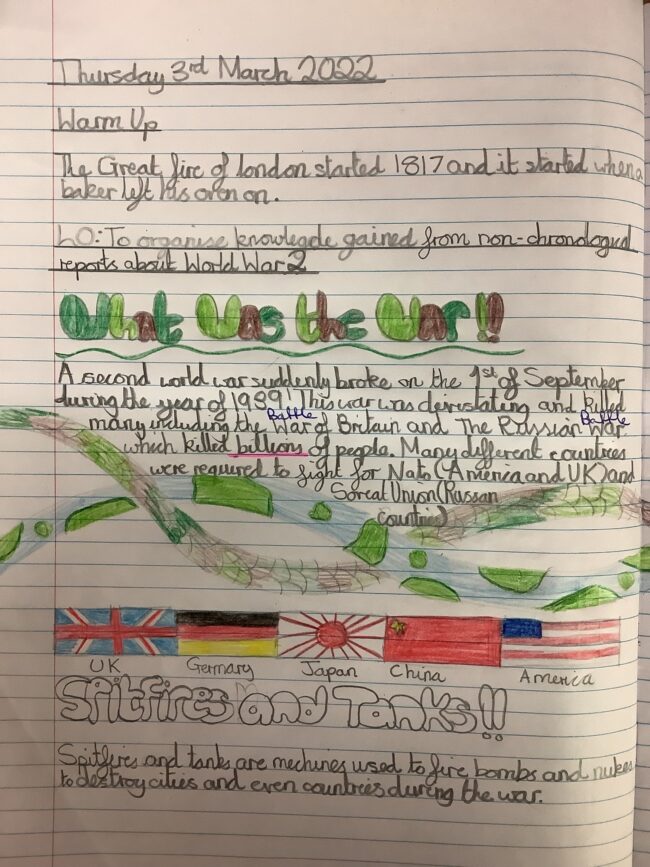 Thursday 3rd March 2022
Warm Up
The Great fire of london started 1817 and it started when a
baker left his oven on.
LO: To organise knowlegde gained from non-chronologual
reports about World War 2
What Was the War!!
A second world war suddenly broke on the 1st of September
during the year of 1939! This war was devistating and killed
Battle Battle
many including the War of Britain and The Russian War
which killed billions of people. Many different countries
were required to fight for Nato (America and UK) and
Soreat Union (Russian
countries)
UK Germany Japan China America
Spitfires and Tanks!!
Spitfires and tanks are mechines used to fire bombs and nukes
to destroy cities and even countries during the war.